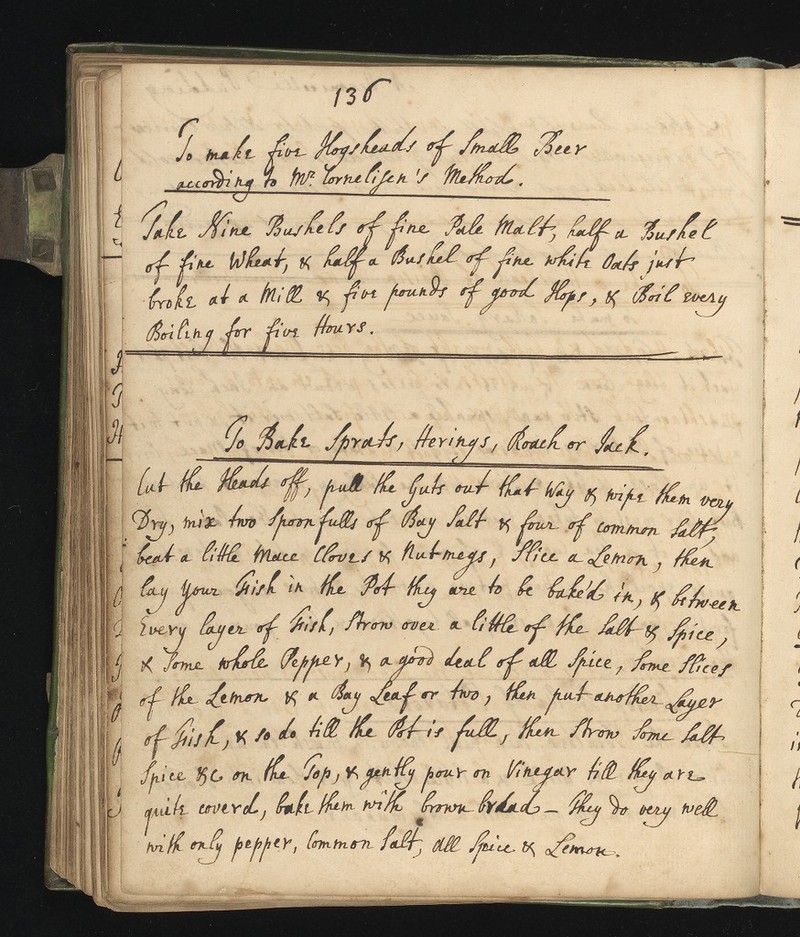 136
To make five Hogsheads of Small Beer
according to Mr. Cornelisen's Method.
Take Nine Bushels of fine Pale Malt, half a Bushel
of fine Wheat, & half a Bushel of fine white Oats just
broke at a Mill & five pounds of good Hops, & Boil every
Boiling for five Hours.
To Bake Sprats, Herings, Roach or Jack.
Cut the Heads off, pull the Guts out that Way & wipe them very
Dry, mix two Spoonfulls of Bay Salt & four of common Salt,
beat a little Mace Cloves & Nutmegs, Slice a Lemon, then
lay your Fish in the Pot they are to be bake'd in, & between
Every layer of Fish, Strow over a little of the Salt & Spice,
& Some whole Pepper, & a good deal of all Spice, Some Slices
of the Lemon & a Bay Leaf or two, then put another Layer
of Fish, & so do till the Pot is full, then Strow Some Salt
Spice &c on the Top, & gently pour on Vinegar till they are
quite coverd, bake them with brown bread – They do very well
with only pepper, Common Salt, all Spice & Lemon.